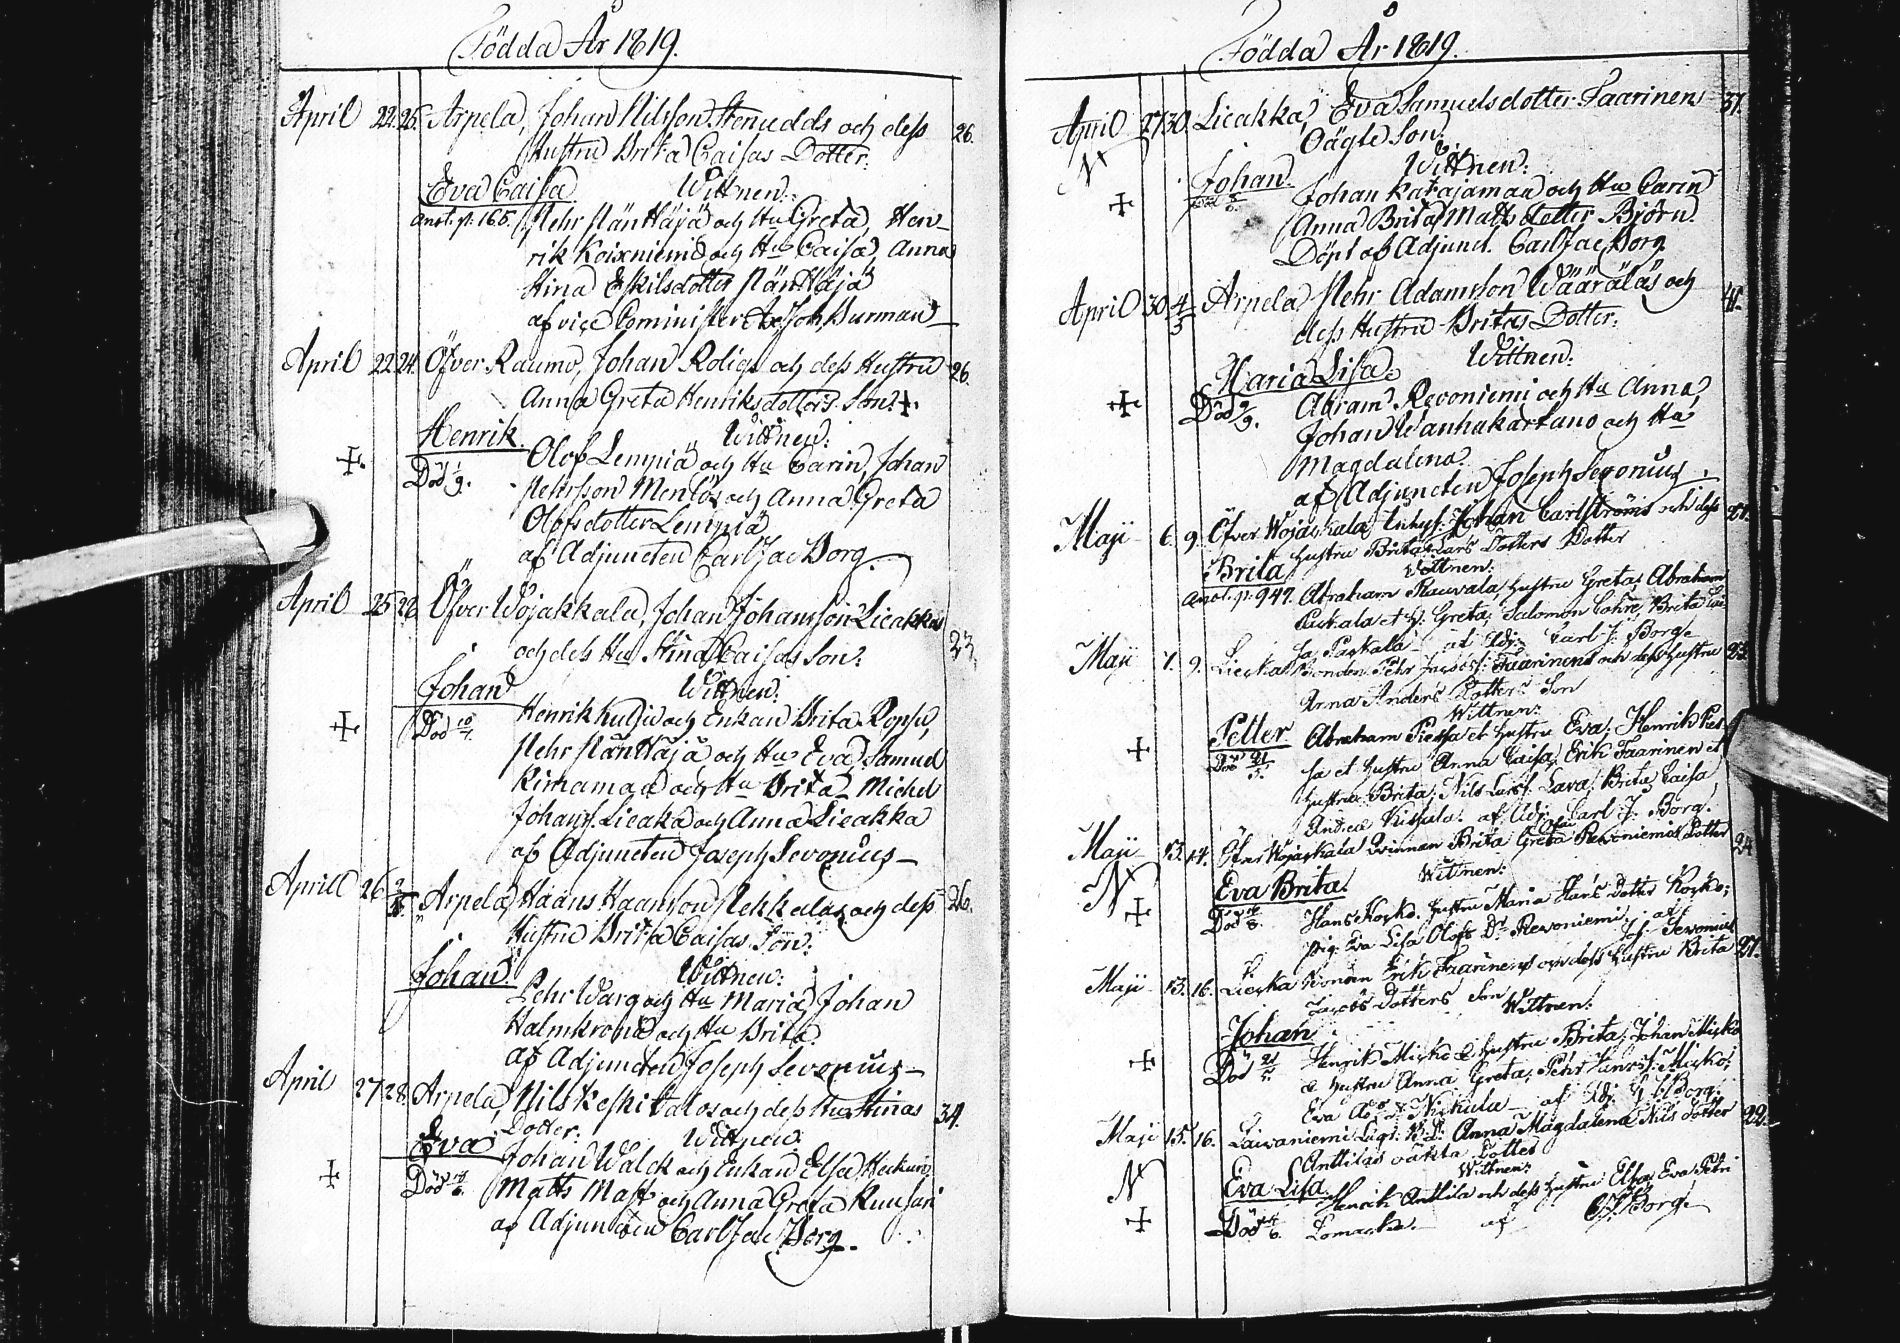 Födda År 1819.
April 22. 25. Arpela, Johan Nilsson Stenudds och dess 26.
Hustru Brita Caisas Dotter.
Eva Caisa Wittnen:
anot. p. 165. Pehr Pänttäjä och Hu Greta, Hen-
rik Koiraniemi och Hu Caisa, Anna
Stina Eskilsdotter Pänttäjä
af vice Comminister Joh Burman
April 22 24. Öfver Raumo, Johan Roligs och dess Hustru 26.
Anna Greta Henriksdotters Son. +
Henrik. Wittnen:
+ Död 1/9. Olof Lempiä och Hu Carin, Johan
Pehrsson Menlös och Anna Greta
Olofsdotter Lempiä
af Adjuncten Carl Jac Borg.
April 25 28 Öfver Wojakkala, Johan Johansson Lieakkas 23.
och dess Hu Stina Caisas Son.
Johan Wittnen:
+ Död 10/7. Henrik Kurju och Enkan Brita Ropsu,
Pehr Pänttäjä och Hu Eva, Samuel
Kirnamaa och Hu Brita, Michel
Johans. Lieaka och Anna Lieakka
af Adjuncten Joseph Sevonius
April 26 2/5. Arpela, Haans Haansson Pekkalas och dess 26.
Hustru Brita Caisas Son.
Johan. Wittnen:
Pehr Warg och Hu Maria, Johan
Halmkrona och Hu Brita.
af Adjuncten Joseph Sevonius
April 27 28. Arpela, Nils Keskitalos och dess Hu Stinas 34.
Dotter. Wittnen:
Eva Johan Walck och Enkan Elsa Heikuri,
+ Död 14/6. Matts Mast och Anna Greta Kuusari
af Adjuncten Carl Jac Borg.
Födda År 1819.
April 27 30. Lieakka, Eva Samuelsdotter Taarinens 37.
N Oägte Son.
Johan. Wittnen:
+ Johan Katajamaa och Hu Carin
Anna Brita Matts dotter Björn.
Döpt af Adjunct. Carl Jac Borg
April 30 4/5 Arpela, Pehr Adamsson Wääräläs och 41.
dess Hustru Britas Dotter.
Maria Lisa. Wittnen:
+ Död 9/9. Abram Revoniemi och Hu Anna,
Johan Wanhakartano och Hu
Magdalena.
af Adjuncten Joseph Sevonius
Maji 6. 9. Öfver Wojakkala Inhys. Johan Carlströms och dess 27.
Hustru Brita Lars Dotters Dotter
Brita Wittnen:
Anot. p. 947. Abraham Rauvala, Hustru Greta, Abraham
Paskala et H. Greta, Salomon Lohre, Brita Lii-
sa Paskala af Adj. Carl J. Borg.
Maji 7. 9. Lieakka Bonden Pehr Taarinens och dess Hustru 23.
Anna Anders Dotters Son
Wittnen:
Petter Abraham Piessa et Hustru Eva, Henrik Pies-
+ Död 21/5. sa et Hustru Anna Caisa, Erik Taarinen et
Hustru Brita, Nils Lars. Lava, Brita Caisa
Anders Kissala. af Adj. Carl J. Borg.
Maji 13. 14. Öfver Wojakkala Qvinnan Brita Greta Revoniemis Dotter 24
N Eva Brita. Wittnen:
+ Hans Kosko, Hustru Maria Hans Dotter Kosko,
pig. Eva Lisa Olofs Dr Revoniemi, af Jos. Sevonius
Maji 13. 16. Lieaka Bonden Erik Taarinens och dess Hustru Brita 27.
Jacobs Dotters Son Wittnen:
Johan
+ Död Henrik Misko & Hustru Brita, Johan Misko
& Hustru Anna Greta, Pehr Misko,
Eva Niskala af Adj. C. J. Borg.
Maji 15. 16. Laivaniemi Anna Magdalena Nils Dotter 22.
Anttilas oäkta Dotter
N Eva Lisa. Wittnen:
Henrik Anttila och dess Hustru Elsa, Eva Petri
+ Död Lomaska. af C. J. Borg.